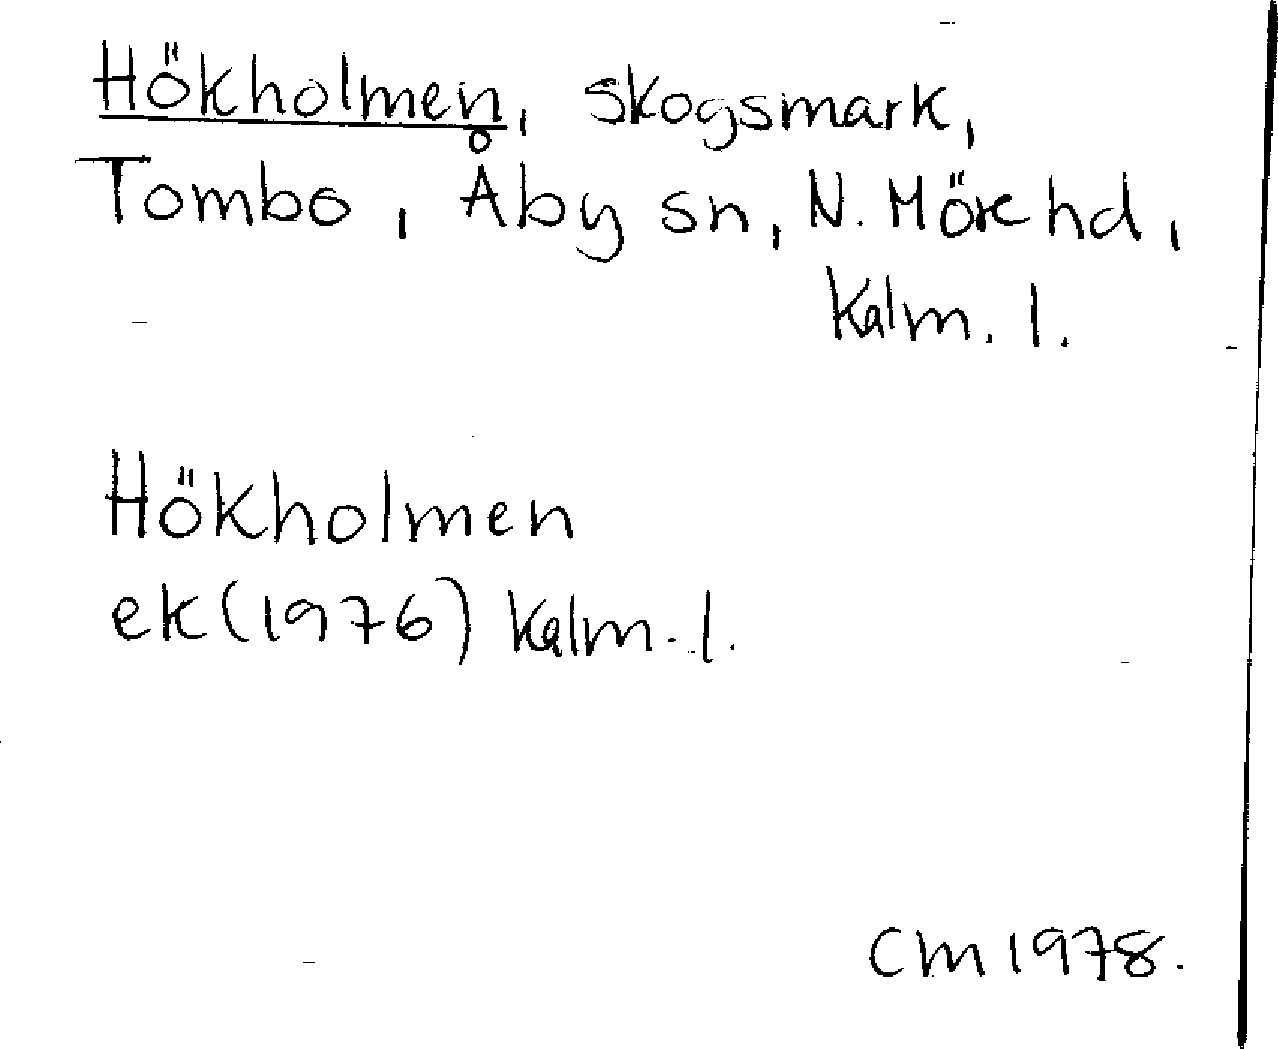 Hökholmen, skogsmark,
Tombo, Åby sn, N. Möre hd,
Kalm. l.
Hökholmen
ek (1976) Kalm. l.
CM 1978.